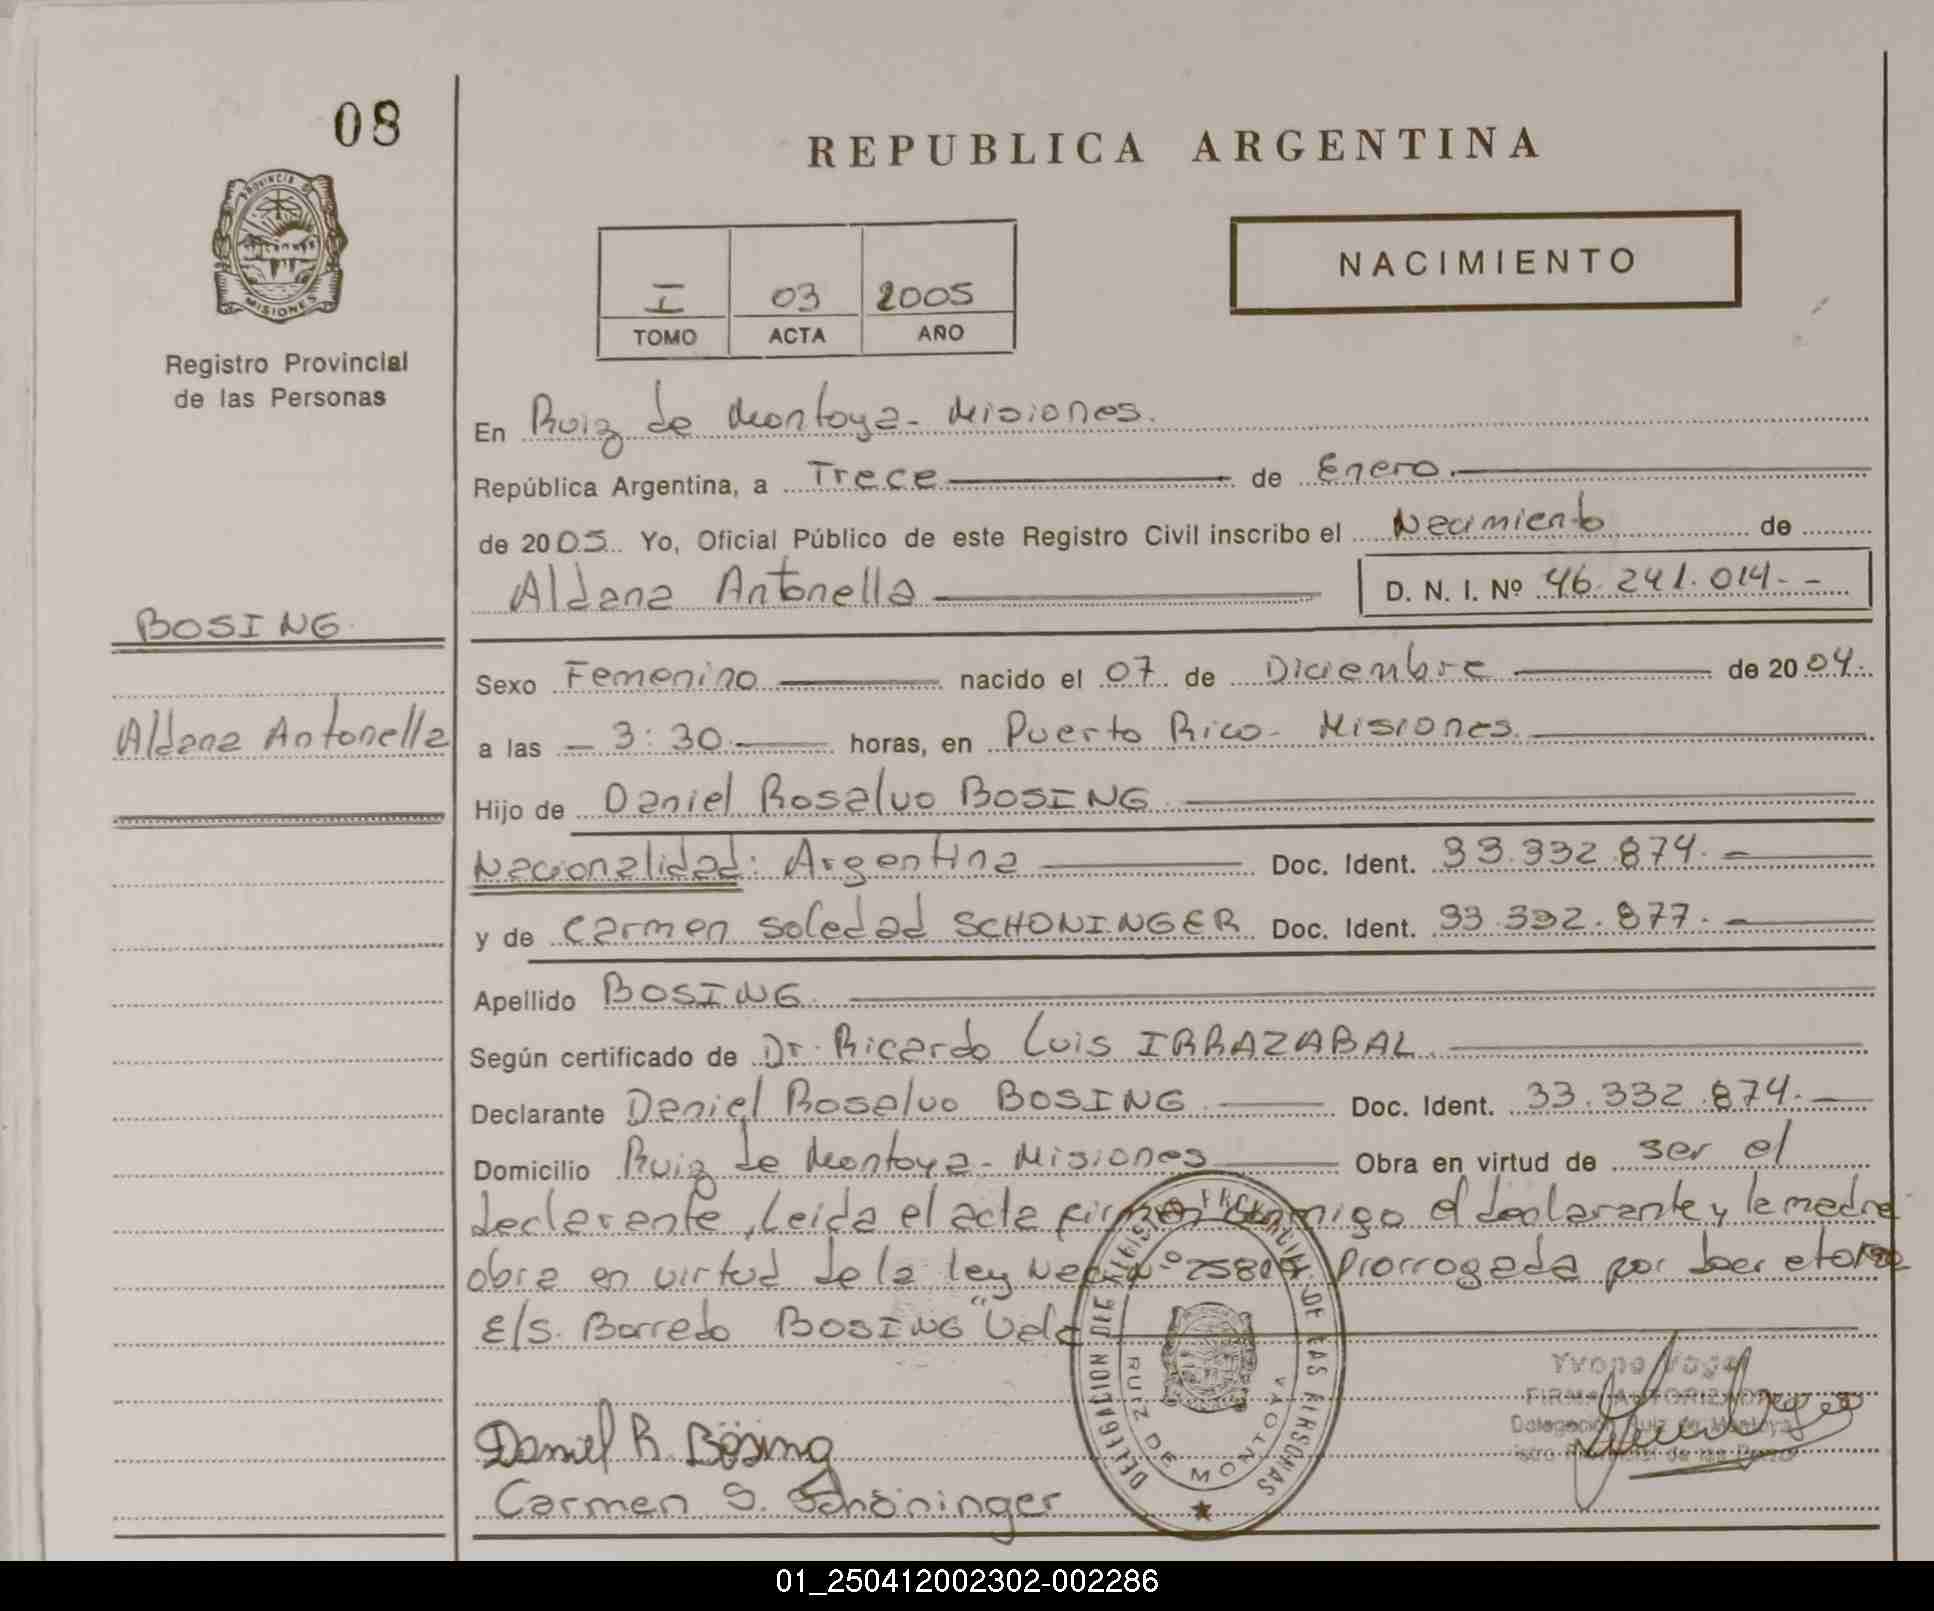 08
REPUBLICA ARGENTINA
PROVINCIA DE
MISIONES
NACIMIENTO
I 03 2005
TOMO ACTA AÑO
Registro Provincial
de las Personas
En Ruiz de Montoya - Misiones.
República Argentina, a Trece de Enero.
de 2005. Yo, Oficial Público de este Registro Civil inscribo el Nacimiento de
Aldana Antonella D. N. I. Nº 46.241.014.--
BOSING
Sexo Femenino nacido el 07 de Diciembre de 2004.
Aldana Antonella
a las - 3:30. horas, en Puerto Rico - Misiones.
Hijo de Daniel Rosalvo BOSING
Nacionalidad: Argentina Doc. Ident. 33.332.874.-
y de Carmen Soledad SCHONINGER Doc. Ident. 33.332.877.-
Apellido BOSING.
Según certificado de Dr. Ricardo Luis IRRAZABAL.
Declarante Daniel Rosalvo BOSING Doc. Ident. 33.332.874.-
Domicilio Ruiz de Montoya - Misiones Obra en virtud de ser el
declarante, Leida el acta firman conmigo el declarante y la madre
obra en virtud de la ley Nac. Nº Prorrogada por
E/S. Borredo BOSING "Vale
DELEGACION DEL REGISTRO PROVINCIAL DE LAS PERSONAS
RUIZ DE MONTOYA
FIRMA AUTORIZADA
Delegación Ruiz de Montoya
Provincial de las
Daniel R. Bösing
Carmen S. Schöninger
01_250412002302-002286